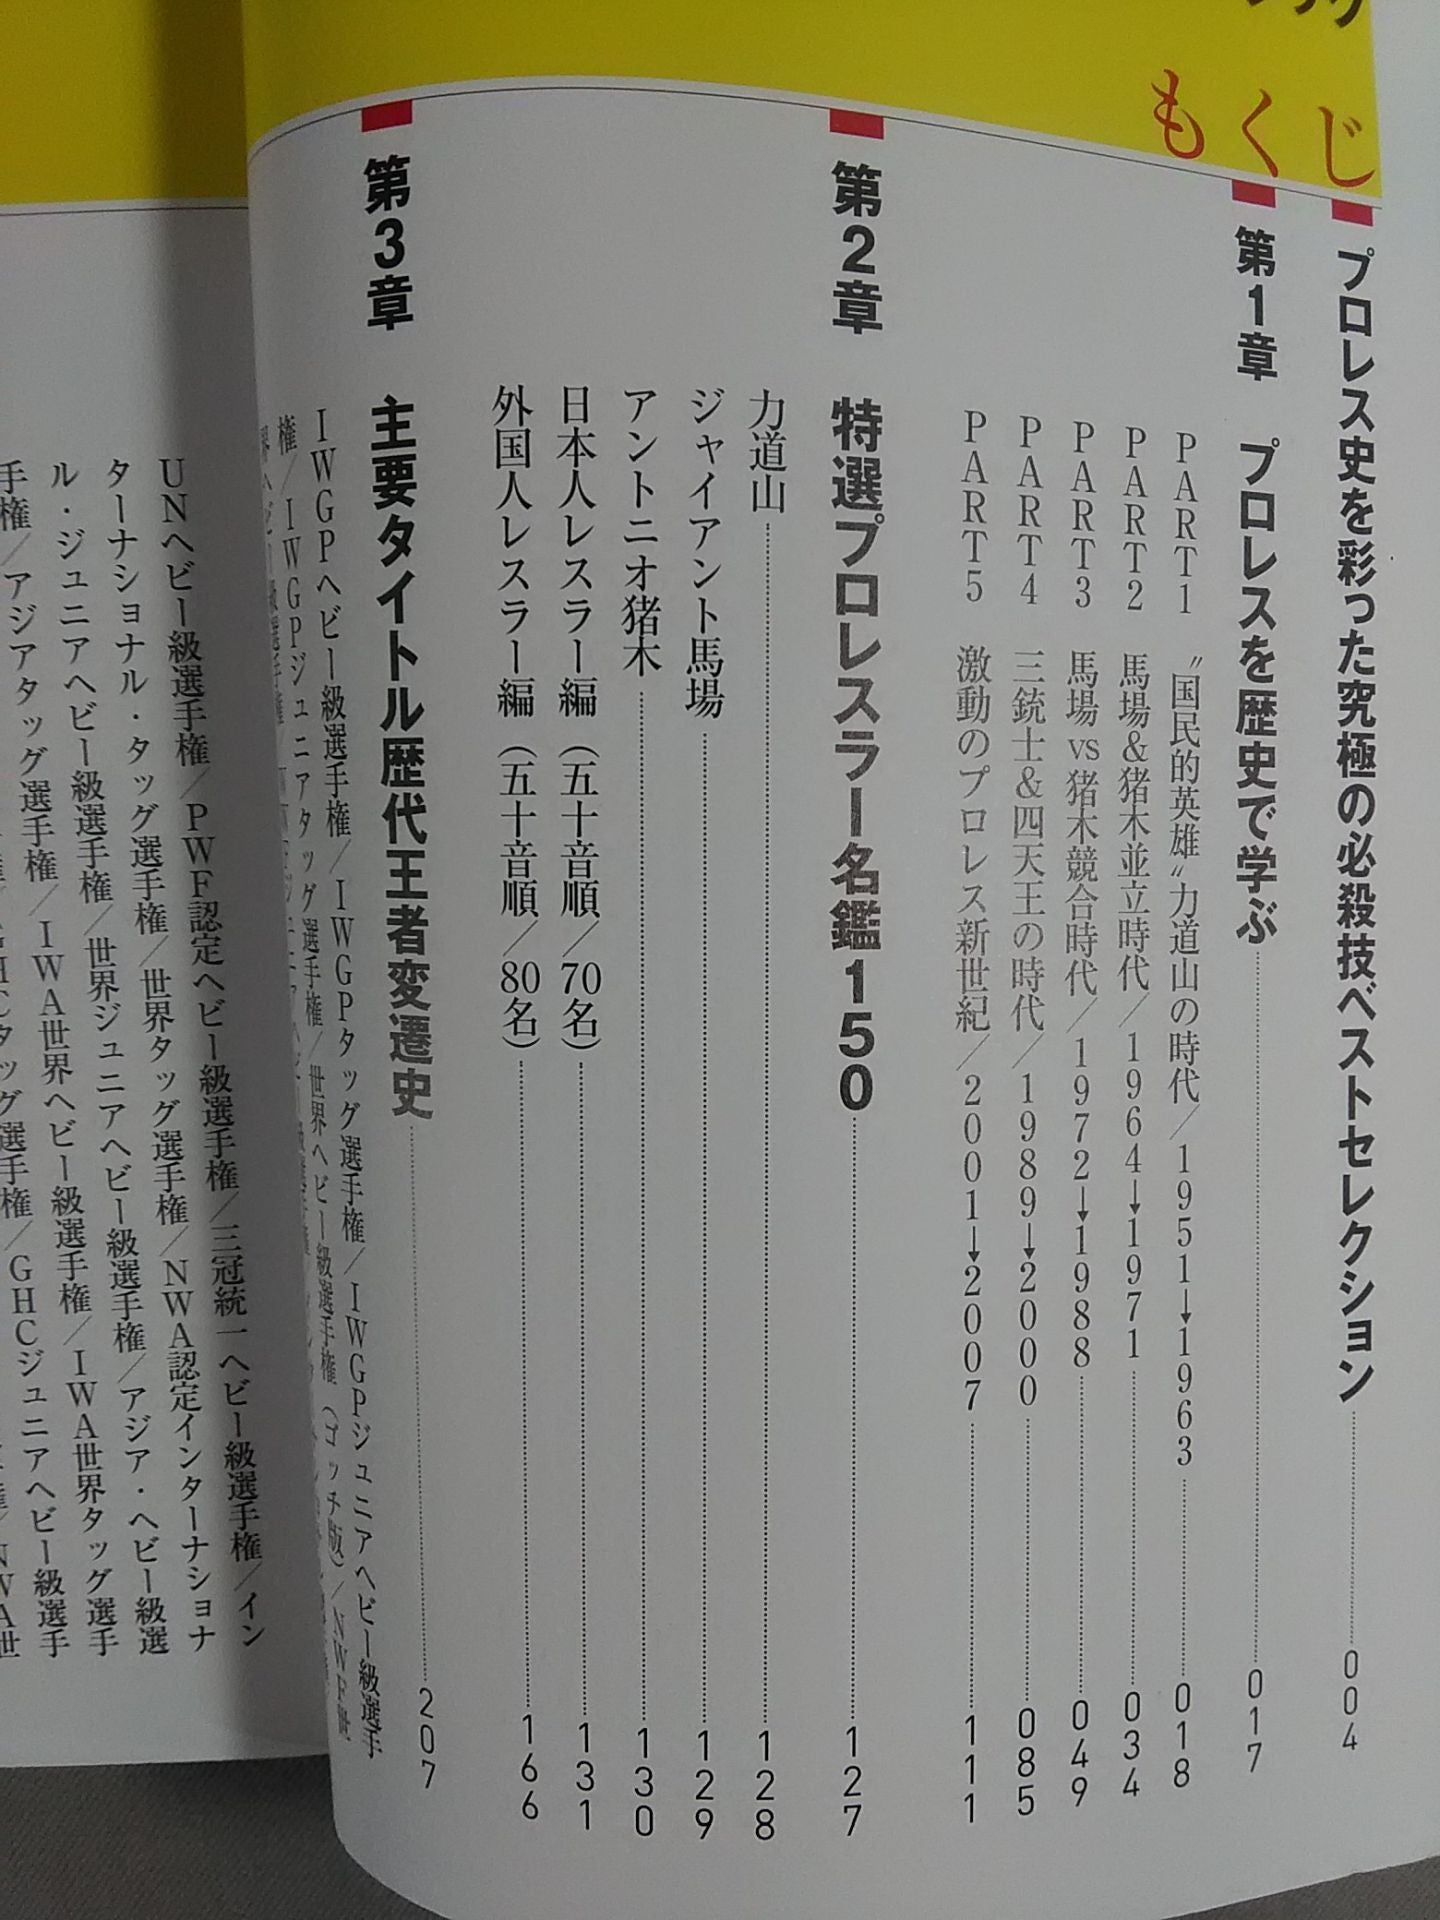 もくじ
プロレス史を彩った究極の必殺技ベストセレクション 004
第1章 プロレスを歴史で学ぶ 017
PART1 〝国民的英雄〟力道山の時代／1951→1963 018
PART2 馬場&猪木並立時代／1964→1971 034
PART3 馬場vs猪木競合時代／1972→1988 049
PART4 三銃士&四天王の時代／1989→2000 085
PART5 激動のプロレス新世紀／2001→2007 111
第2章 特選プロレスラー名鑑150 127
力道山 128
ジャイアント馬場 129
アントニオ猪木 130
日本人レスラー編（五十音順／70名） 131
外国人レスラー編（五十音順／80名） 166
第3章 主要タイトル歴代王者変遷史 207
IWGPヘビー級選手権／IWGPタッグ選手権／IWGPジュニアヘビー級選手
権／IWGPジュニアタッグ選手権／世界ヘビー級選手権（ゴッチ版）／NWF世
UNヘビー級選手権／PWF認定ヘビー級選手権／三冠統一ヘビー級選手権／イン
ターナショナル・タッグ選手権／世界タッグ選手権／NWA認定インターナショナ
ル・ジュニアヘビー級選手権／世界ジュニアヘビー級選手権／アジア・ヘビー級選
手権／アジアタッグ選手権／IWA世界ヘビー級選手権／IWA世界タッグ選手
タッグ選手権／GHCジュニアヘビー級選手